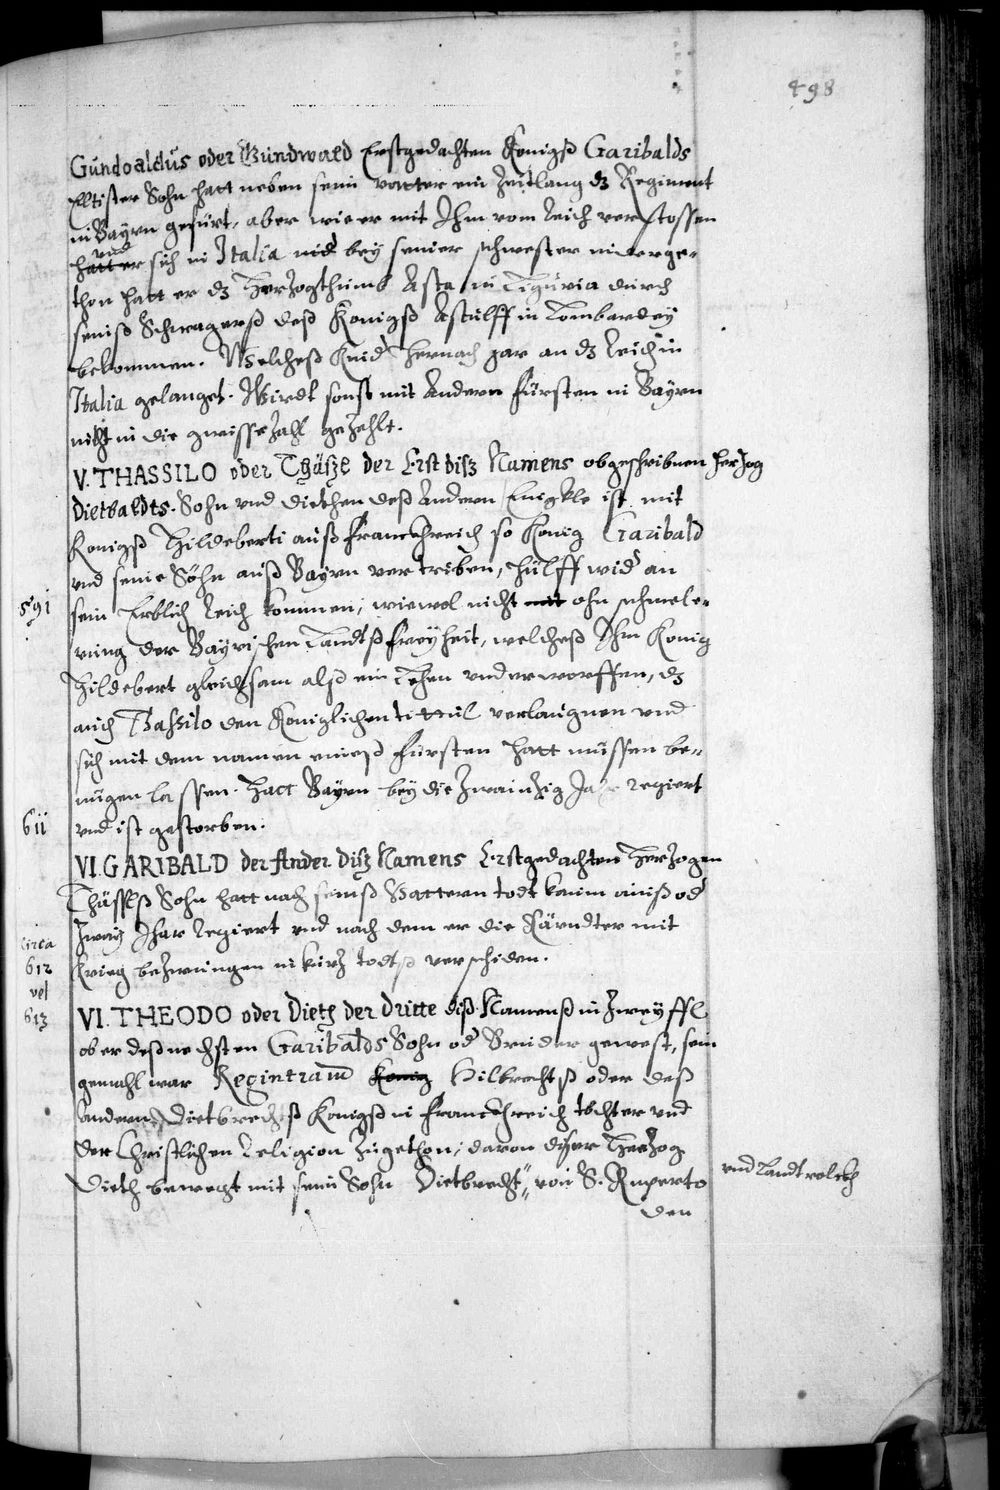 498
Gundoaldus oder Gundwald Erstgedachten Konigß Garibalds
Eltister Sohn hatt neben seim vatter ein Zeitlang dz Regiment
in Bayrn gefürt, aber wie er mit Ihm vom Reich verstossen
vnd
hatt er sich in Italia nid bey seiner schwester niderge-
thon hatt er dz Herzogthumb Asta in Liguria durch
seinß Schwagerß deß Konigß Astulff in Lombardey
bekommen. Welcheß Kind hernach gar an dz Reich in
Italia gelanget. Wirdt sonst mit Andern fürsten in Bayrn
nicht in die gwisse Zahl gezehlt.
V. THASSILO oder Thäsze der Erst disz Namens obgeschribnen Herzog
Dietbaldts Sohn vnd Diethen deß Andern Enigkle ist mit
Konigß Hildeberti auß Franchreich so Konig Garibald
vnd seine Söhn auß Bayrn vertriben, hülff wid an
591
sein Erblich Reich kommen, wiewol nicht mit ohn schmele-
rung der Bayrischen Landtß freyheit, welcheß Ihm Konig
Hildebert gleichsam alß ein Lehen vnderworffen, dz
auch Thassilo den Koniglichen tittul verlaugnen vnd
sich mit dem namen eineß fürsten hatt müssen be-
nügen lassen. Hatt Bayrn bey die Zwainzig Jahr regiert
611
vnd ist gestorben.
VI. GARIBALD der Ander disz Namens Erstgedachten Herzogen
Thässelß Sohn hatt nach seinß Vattern todt kaum ainß od
circa
612
vel
613
Zway Jhar Regiert vnd nach dem er die Kärndter mit
Krieg bezwungen in kurz todtß verschiden.
VI. THEODO oder Dietz der dritte diß Namenß in Zweyffl
ob er deß nechsten Garibalds Sohn od Bruder gewest, sein
gemahl war Regintraud Konig Hilbrechtß oder deß
Andern Dietbrechtß Konigß in Franchreich tochter vnd
der Christlichen Religion Zugethon, daron diser Herzog
Dieth bewegt mit seim Sohn Dietbrecht von S. Ruperto
vnd Landtvolckh
den